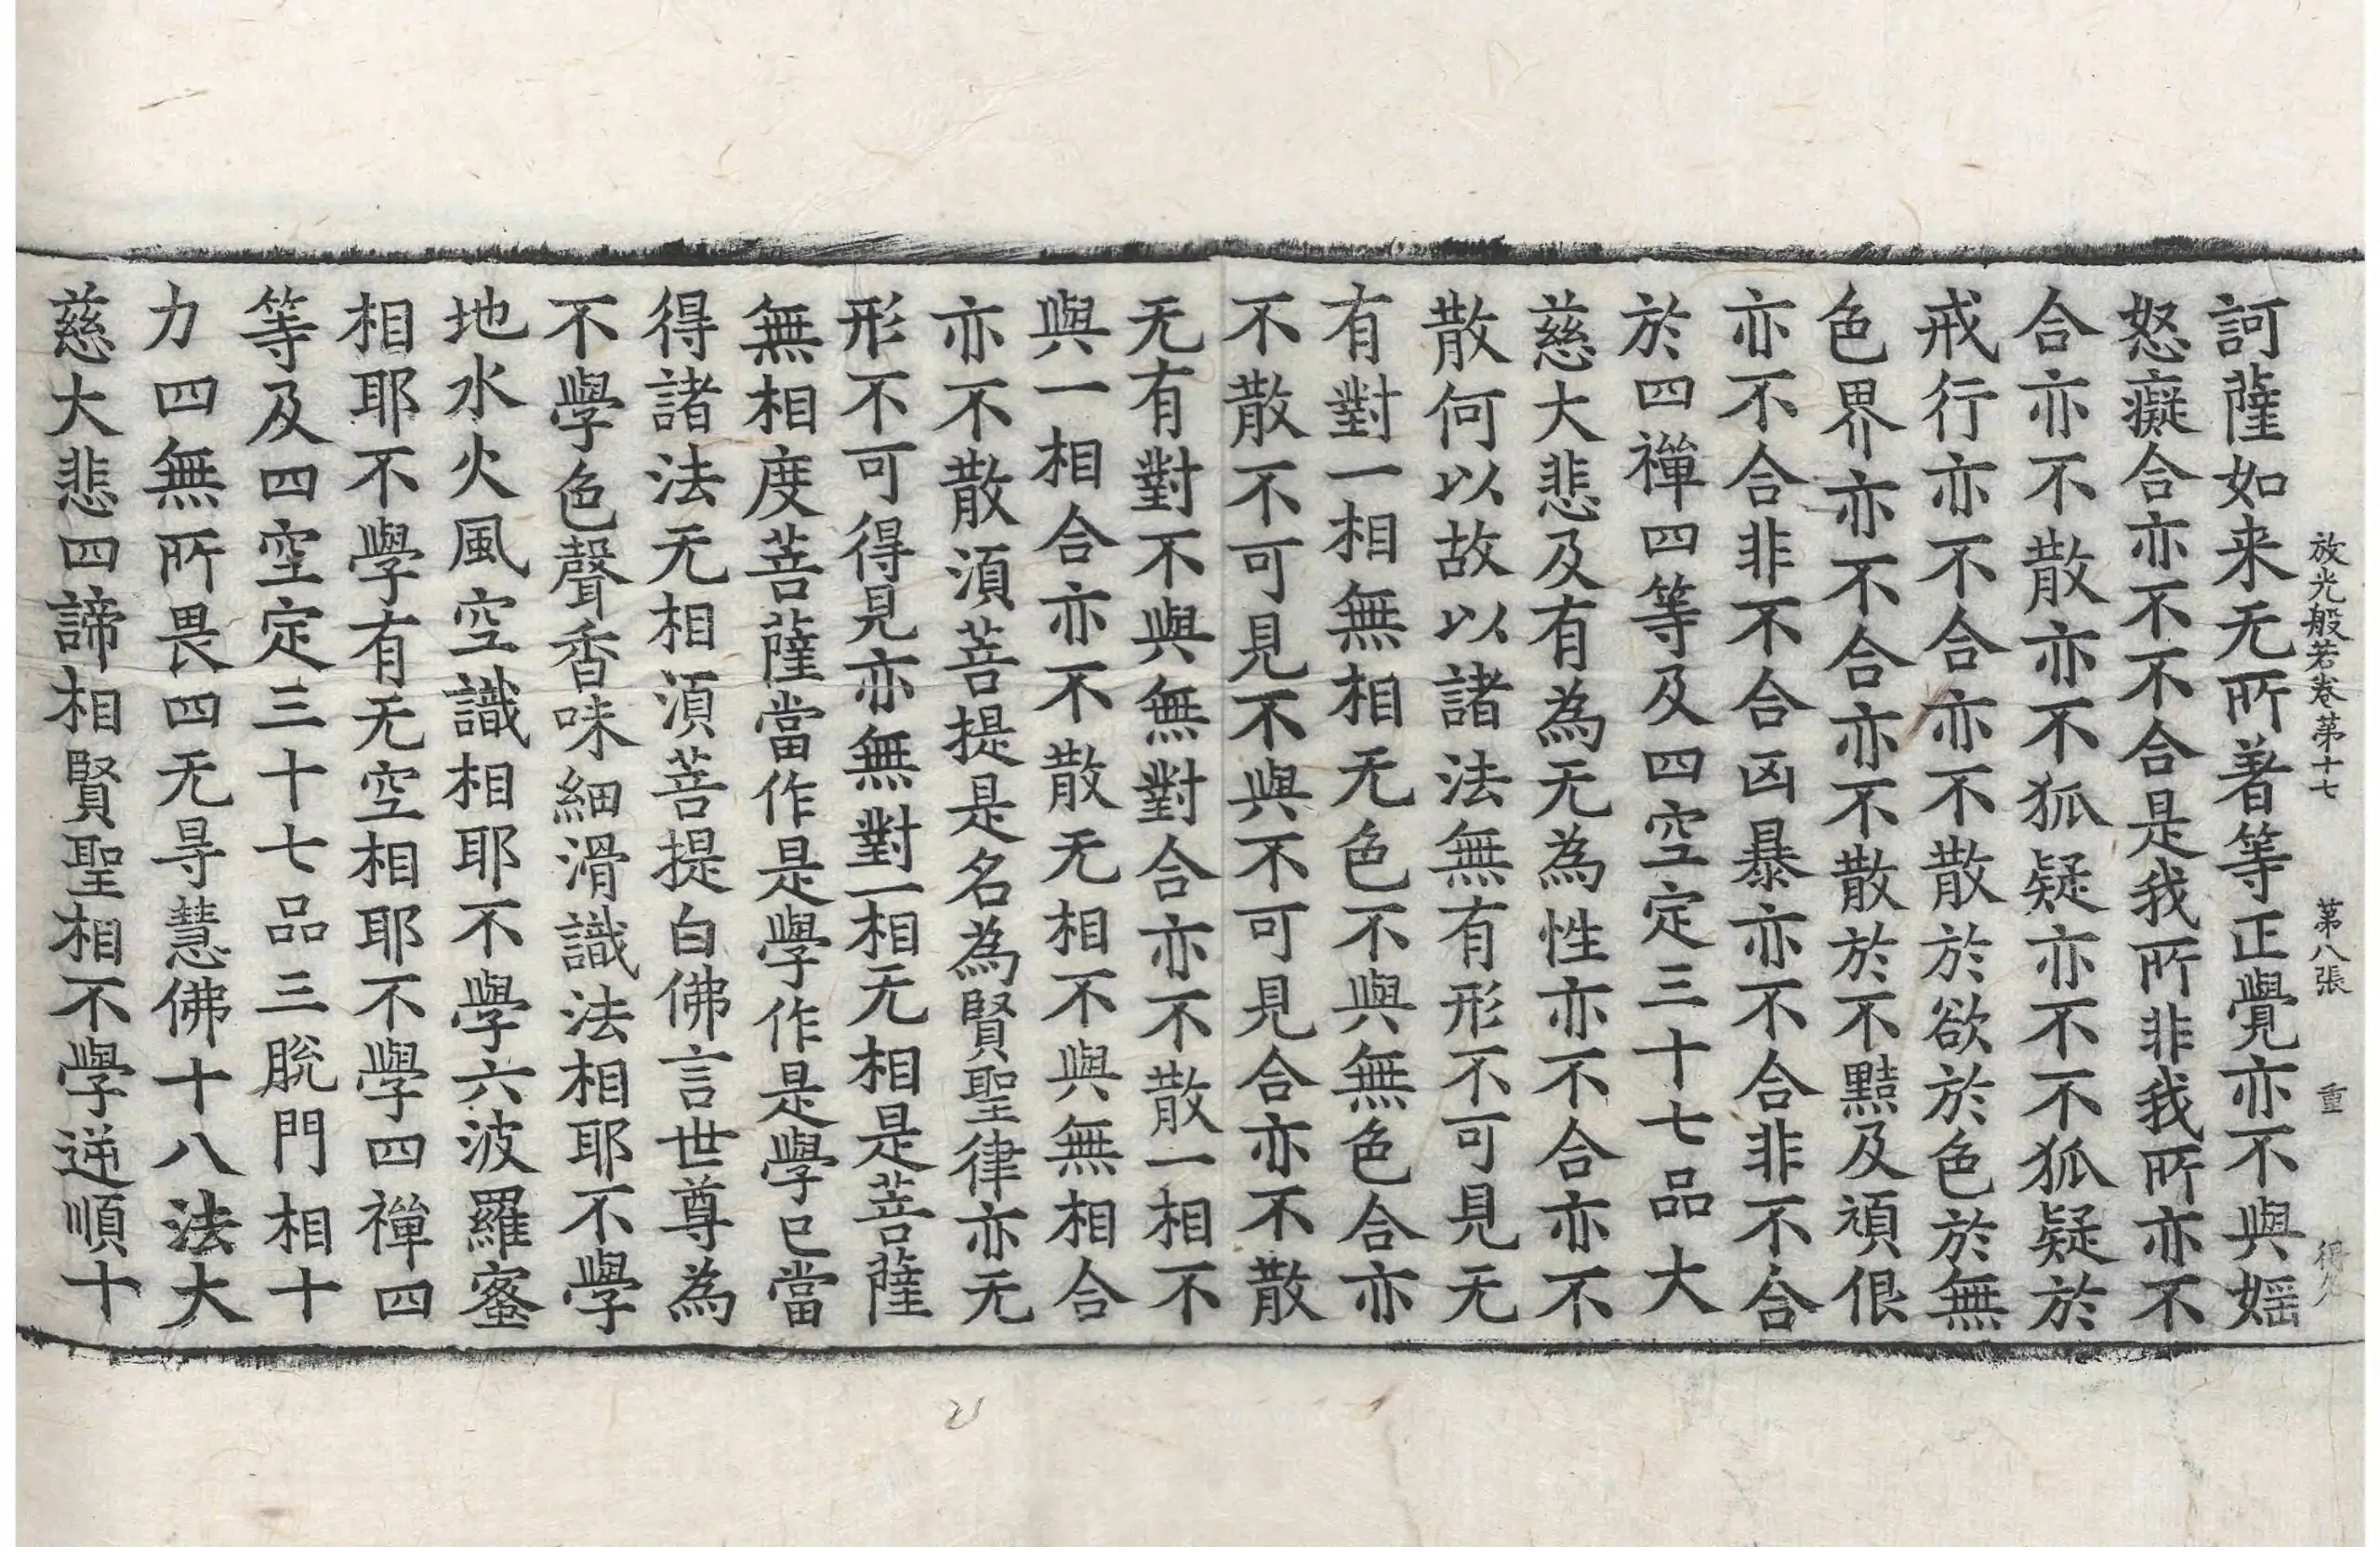 放光般若卷第十七　第八張　重
訶薩如来无所著等正覺亦不與婬
怒癡合亦不不合是我所非我所亦不
合亦不散亦不狐疑亦不不狐疑於
戒行亦不合亦不散於欲於色於無
色界亦不合亦不散於不黠及頑佷
亦不合非不合凶暴亦不合非不合
於四禪四等及四空定三十七品大
慈大悲及有為无為性亦不合亦不
散何以故以諸法無有形不可見无
有對一相無相无色不與無色合亦
不散不可見不與不可見合亦不散
无有對不與無對合亦不散一相不
與一相合亦不散无相不與無相合
亦不散湏菩提是名為賢聖律亦无
形不可得見亦無對一相无相是菩薩
無相度菩薩當作是學作是學已當
得諸法无相湏菩提白佛言世尊為
不學色聲香味細滑識法相耶不學
地水火風空識相耶不學六波羅蜜
相耶不學有无空相耶不學四禪四
等及四空定三十七品三脫門相十
力四無所畏四无㝵慧佛十八法大
慈大悲四諦相賢聖相不學逆順十